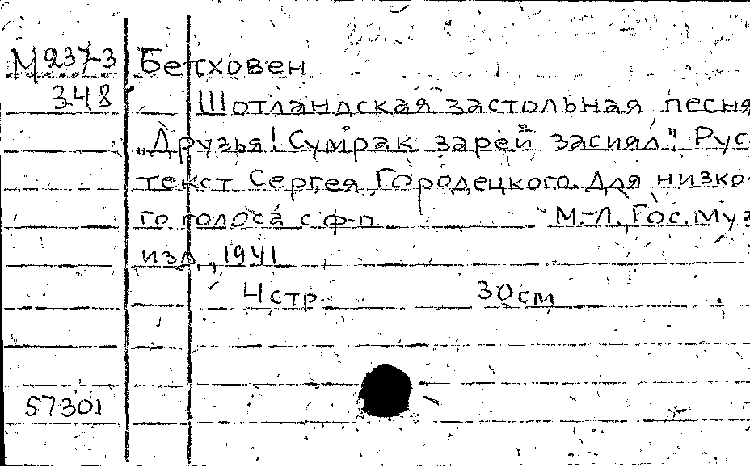 М237-3 Бетховен
348 Шотландская застольная песня
„Друзья! Сумрак зарей засиял". Рус
текст Сергея Городецкого. Для низко-
го голоса с ф-п М.-Л., Гос. муз
изд., 1941
4 стр. 30 см
57301